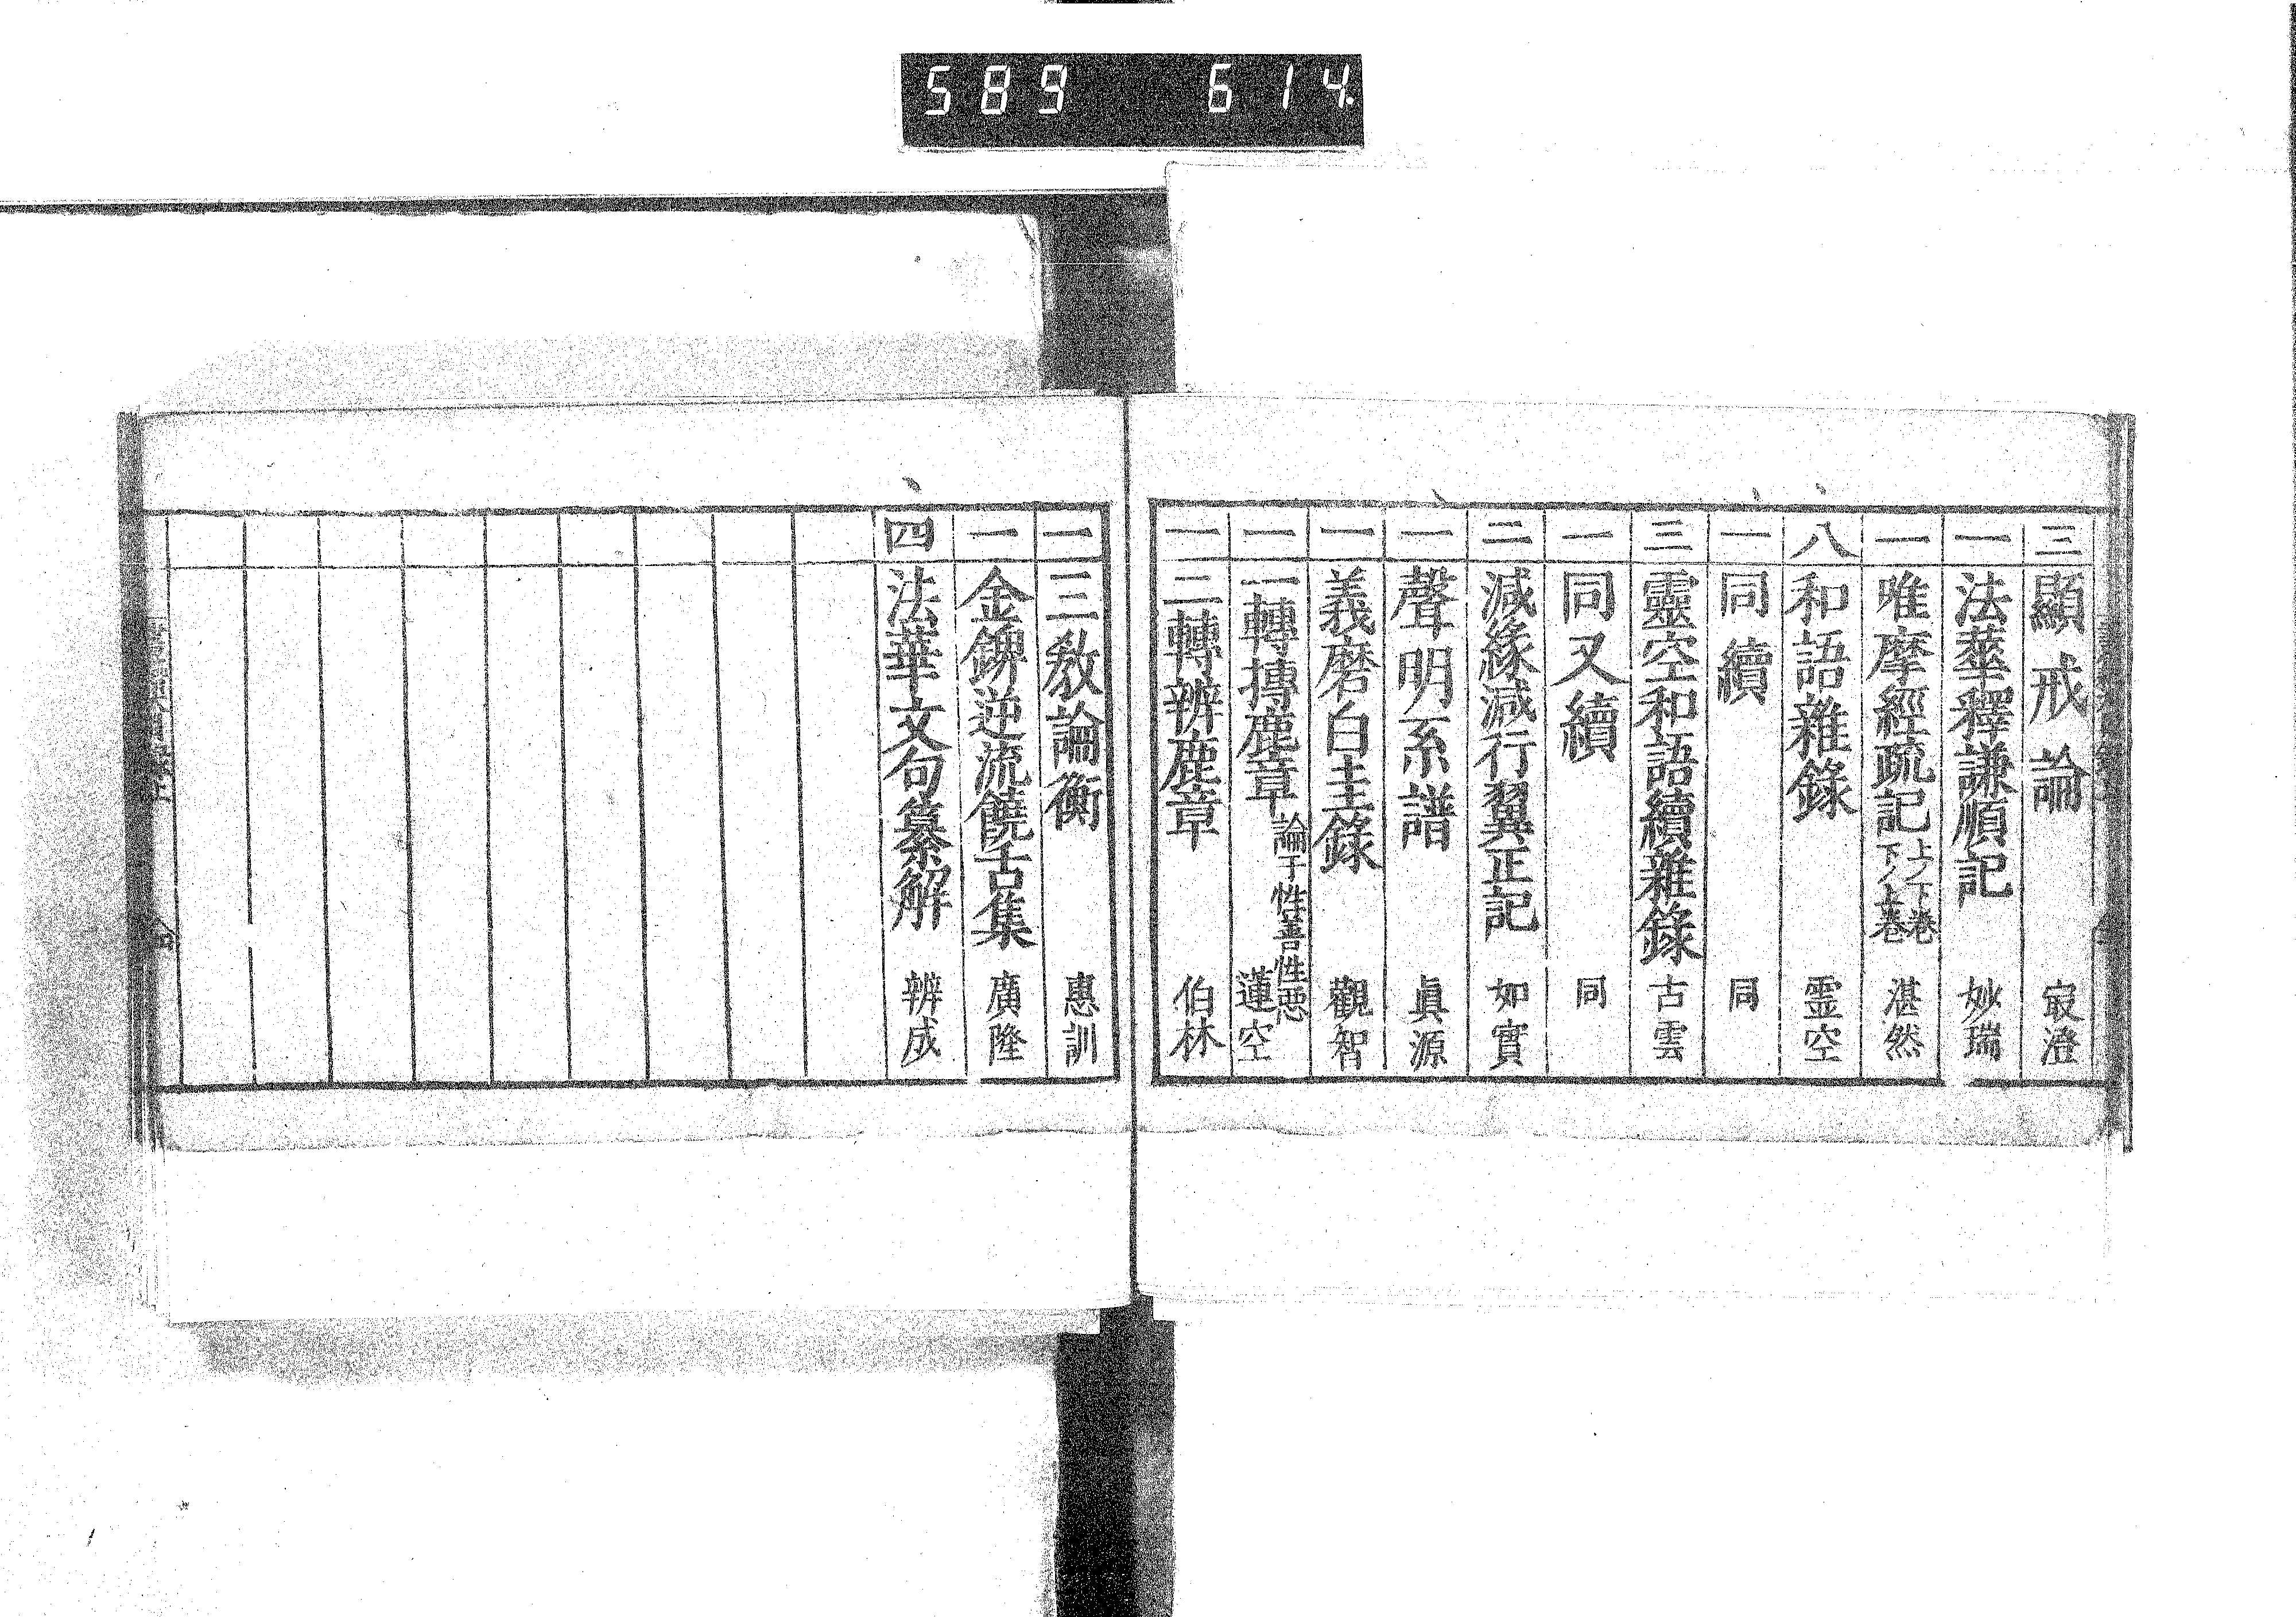 589 614
三 顯戒論 㝡澄
一 法華釋謙順記 妙瑞
一 唯摩經疏記 上ノ下卷 下ノ上卷 湛然
八 和語雜錄 霊空
一 同續 同
三 靈空和語續雜錄 古雲
一 同又續 同
二 減緣減行翼正記 如實
一 聲明系譜 眞源
一 義磨白圭錄 觀智
一 一轉轉麁章 論于性善性惡 蓮空
一 二轉辨麁章 伯林
一 三教論衡 惠訓
一 金錍逆流饒舌集 廣隆
四 法華文句纂解 辨成